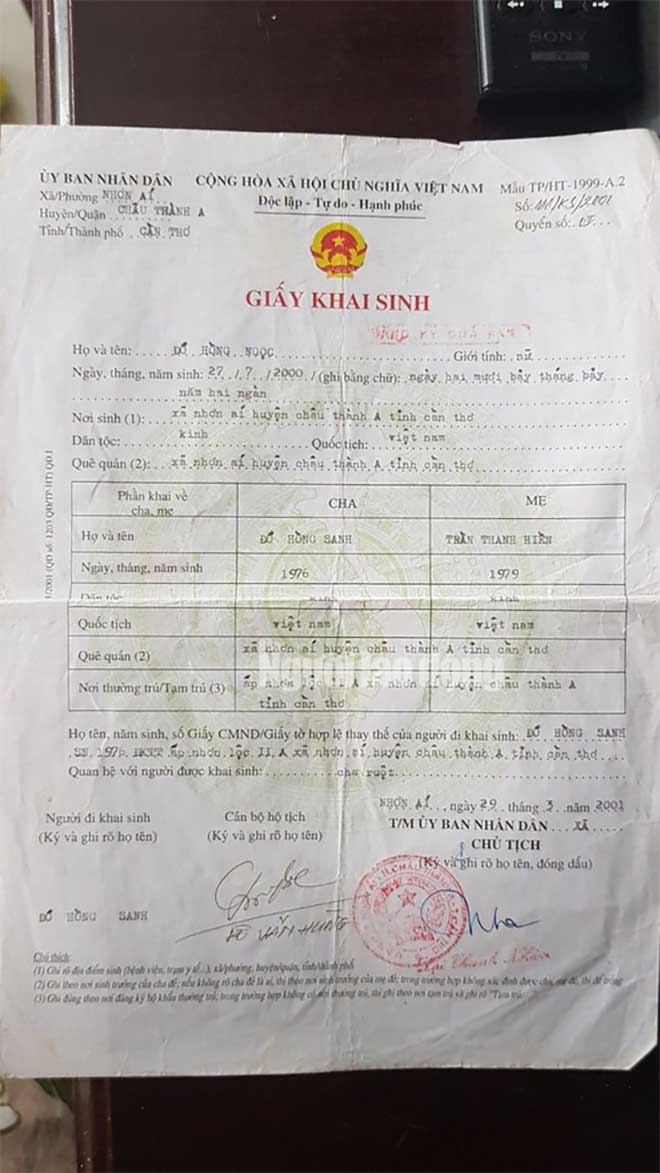 SONY
ỦY BAN NHÂN DÂN CỘNG HÒA XÃ HỘI CHỦ NGHĨA VIỆT NAM Mẫu TP/HT-1999-A.2
Xã/Phường NHƠN AÍ Độc lập - Tự do - Hạnh phúc Số: 111/KS/2001
Huyện/Quận CHÂU THÀNH A Quyển số:
Tỉnh/Thành phố CẦN THƠ
GIẤY KHAI SINH
ĐĂNG KÝ QUÁ HẠN
Họ và tên: ĐỖ HỒNG NGỌC Giới tính: nữ
Ngày, tháng, năm sinh: 27 / 7 / 2000 / (ghi bằng chữ): ngày hai mươi bảy tháng bảy
năm hai ngàn
Nơi sinh (1): xã nhơn aí huyện châu thành A tỉnh cần thơ
Dân tộc: kinh Quốc tịch: việt nam
Quê quán (2): xã nhơn aí huyện châu thành A tỉnh cần thơ
Phần khai về cha, mẹ CHA MẸ
Họ và tên ĐỖ HỒNG SANH TRẦN THANH HIỀN
Ngày, tháng, năm sinh 1976 1979
Dân tộc kinh kinh
Quốc tịch việt nam việt nam
Quê quán (2) xã nhơn aí huyện châu thành A tỉnh cần thơ
Nơi thường trú/Tạm trú (3) ấp nhơn lộc II A xã nhơn aí huyện châu thành A
tỉnh cần thơ
Họ tên, năm sinh, số Giấy CMND/Giấy tờ hợp lệ thay thế của người đi khai sinh: ĐỖ HỒNG SANH
SN 1976 ĐKTT ấp nhơn lộc II A xã nhơn aí huyện châu thành A tỉnh cần thơ
Quan hệ với người được khai sinh: cha ruột
NHƠN AÍ, ngày 29 tháng 3 năm 2001
Người đi khai sinh Cán bộ hộ tịch T/M ỦY BAN NHÂN DÂN XÃ
(Ký và ghi rõ họ tên) (Ký và ghi rõ họ tên) CHỦ TỊCH
(Ký và ghi rõ họ tên, đóng dấu)
ĐỖ HỒNG SANH
Chú thích:
(1) Ghi rõ địa điểm sinh (bệnh viện, trạm y tế...), xã/phường, huyện/quận, tỉnh/thành phố
(2) Ghi theo nơi sinh trưởng của cha đẻ; nếu không rõ cha đẻ là ai, thì theo nơi sinh trưởng của mẹ đẻ; trong trường hợp không xác định được cha, mẹ đẻ, thì để trống
(3) Ghi đúng theo nơi đăng ký hộ khẩu thường trú; trong trường hợp không có nơi thường trú, thì ghi theo nơi tạm trú và ghi rõ "Tạm trú"